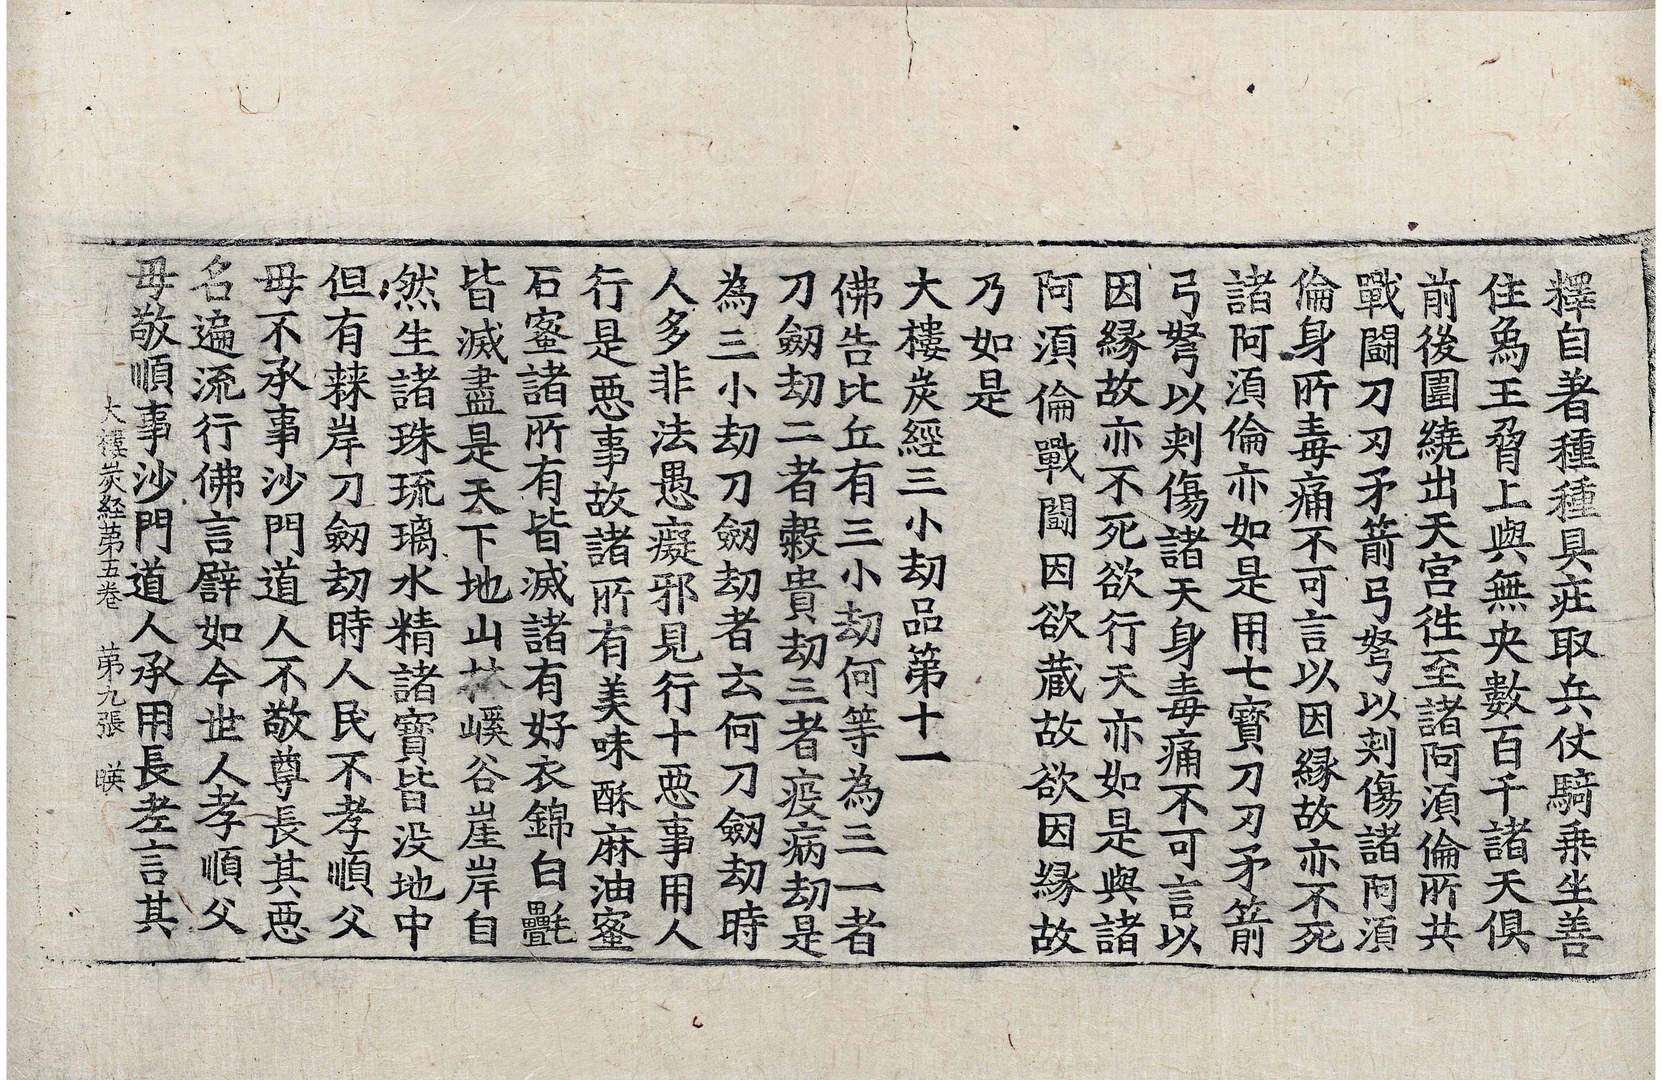 擇自著種種具疘取兵仗騎乗坐善
住為王脊上與無央數百千諸天俱
前後圍繞出天宮徃至諸阿湏倫所共
戰闘刀刃矛箭弓弩以刾傷諸阿湏
倫身所毒痛不可言以因縁故亦不死
諸阿湏倫亦如是用七寶刀刃矛箭
弓弩以刾傷諸天身毒痛不可言以
因縁故亦不死欲行天亦如是與諸
阿湏倫戰闘因欲蔵故欲因縁故
乃如是
大樓炭經三小刼品第十一
佛告比丘有三小刼何等為三一者
刀劒刼二者糓貴刼三者疫病刼是
為三小刼刀劒刼者云何刀劒刼時
人多非法愚癡邪見行十悪事用人
行是悪事故諸所有美味酥麻油蜜
石蜜諸所有皆滅諸有好衣錦白㲲
皆滅盡是天下地山林嵠谷崖岸自
然生諸珠琉璃水精諸寶皆没地中
但有棘岸刀劒刼時人民不孝順父
母不承事沙門道人不敬尊長其悪
名遍流行佛言譬如今世人孝順父
母敬順事沙門道人承用長孝言其
大樓炭経苐五卷 苐九張 暎